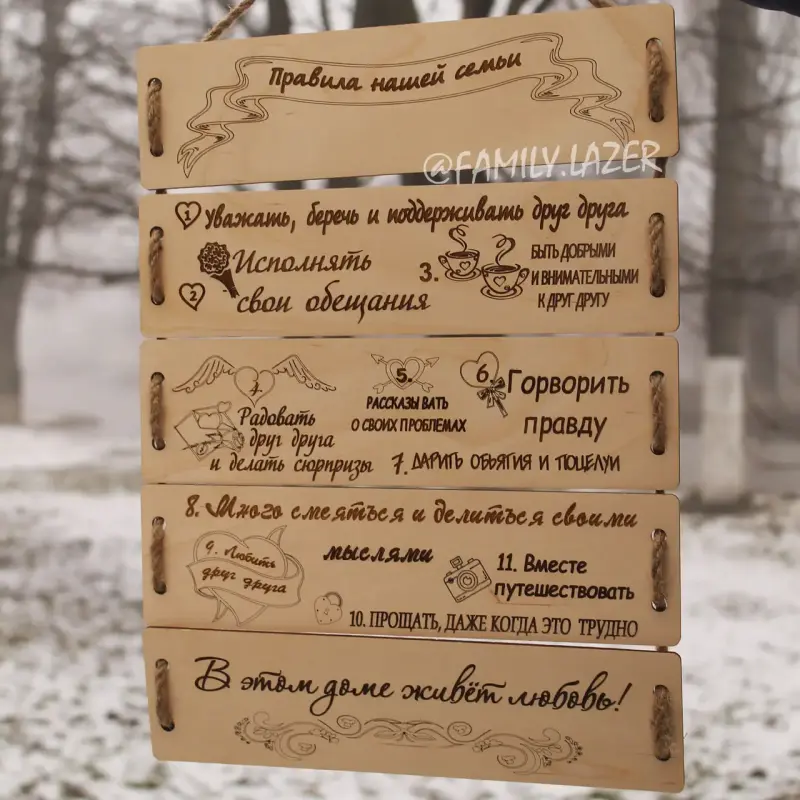 Правила нашей семьи
@FAMILY.LAZER
1 Уважать, беречь и поддерживать друг друга
2 Исполнять
свои обещания
3. БЫТЬ ДОБРЫМИ
И ВНИМАТЕЛЬНЫМИ
К ДРУГ ДРУГУ
4. Радовать
друг друга
и делать сюрпризы
5. РАССКАЗЫ ВАТЬ
О СВОИХ ПРОБЛЕМАХ
6. Горворить
правду
7. ДАРИТЬ ОБЪЯТИЯ И ПОЦЕЛУИ
8. Много смеяться и делиться своими
мыслями
9. Любить
друг друга
11. Вместе
путешествовать
10. ПРОЩАТЬ, ДАЖЕ КОГДА ЭТО ТРУДНО
В этом доме живёт любовь!